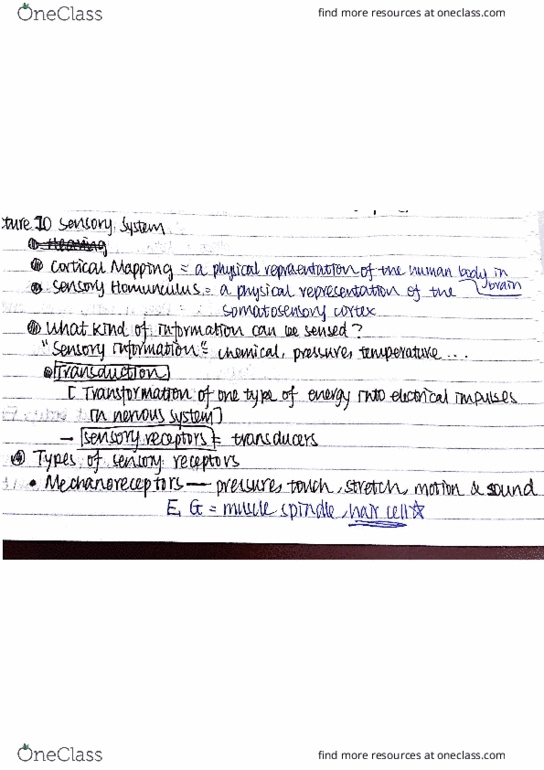 OneClass
find more resources at oneclass.com
ture 10 sensory system
Hearing
Cortical Mapping = a physical representation of the human body in brain
Sensory Homunculus = a physical representation of the
somatosensory cortex
What kind of information can be sensed?
"Sensory information" = chemical, pressure, temperature ...
Transduction
[ Transformation of one type of energy into electrical impulses
in nervous system]
— sensory receptors = transducers
Types of sensory receptors
• Mechanoreceptors — pressure, touch, stretch, motion & sound
E.G = muscle spindle, hair cell☆
OneClass
find more resources at oneclass.com